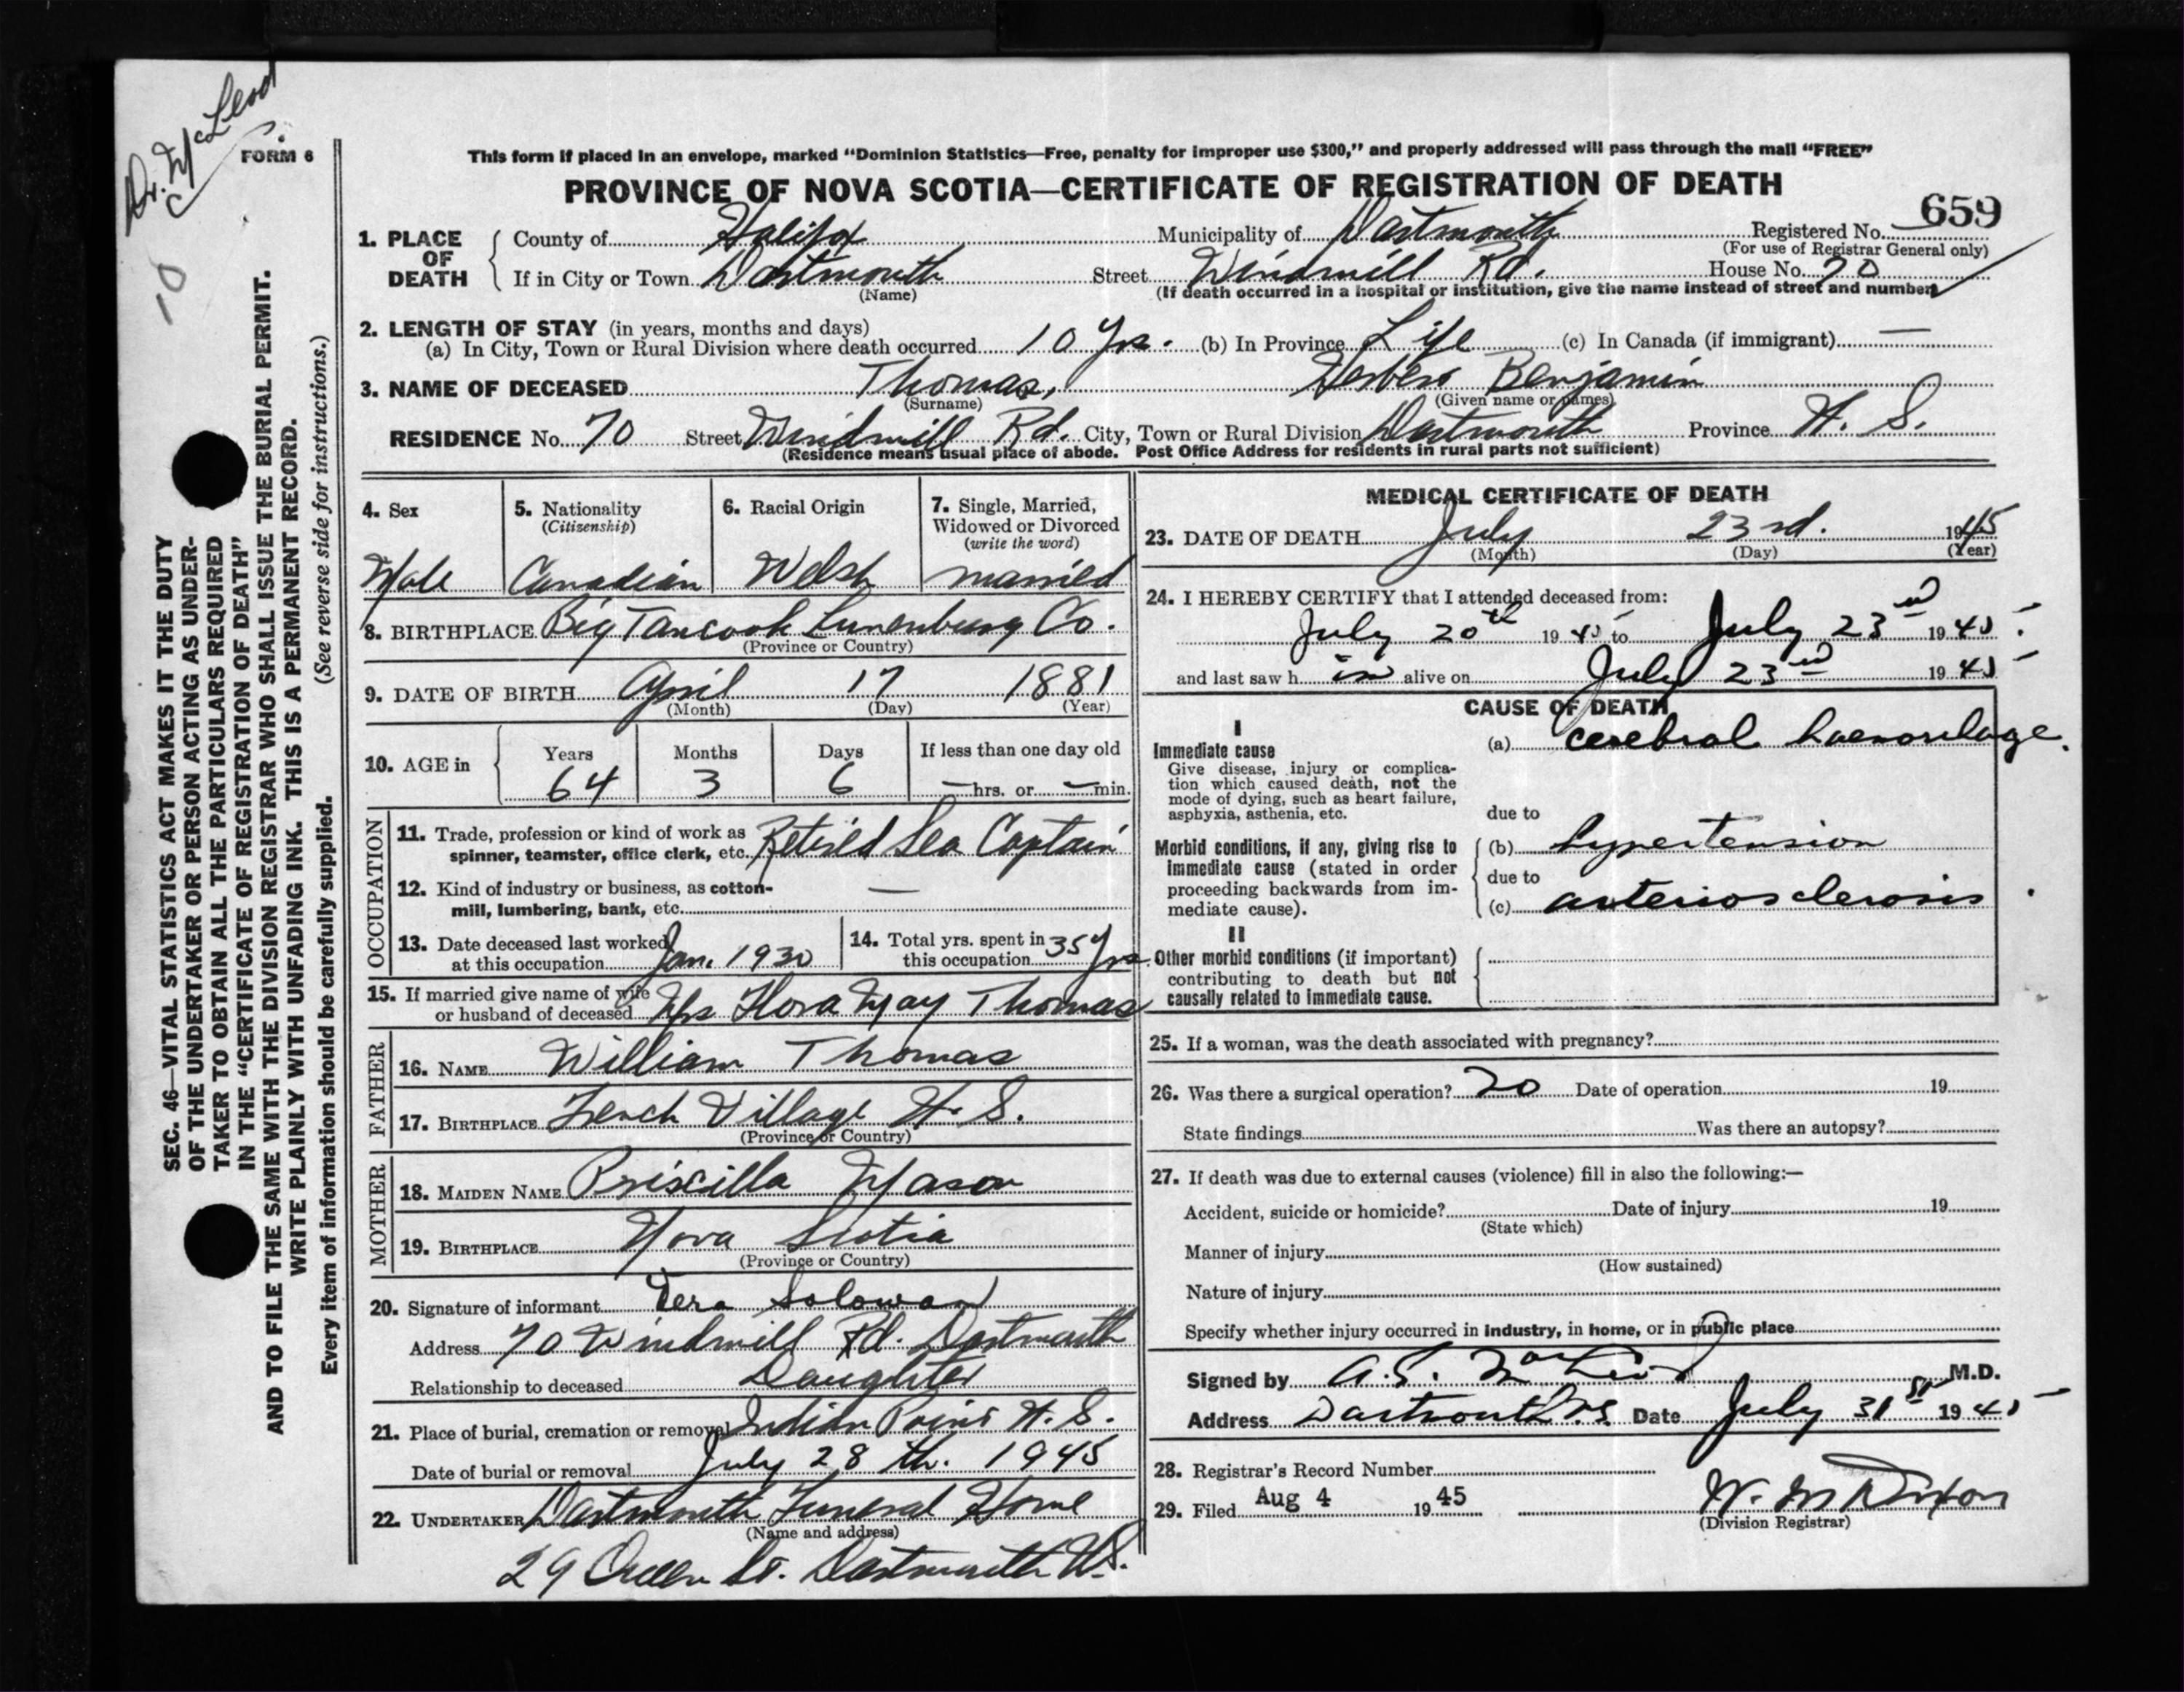 Dr. McLeod
FORM 6
This form if placed in an envelope, marked "Dominion Statistics—Free, penalty for improper use $300," and properly addressed will pass through the mail "FREE"
PROVINCE OF NOVA SCOTIA—CERTIFICATE OF REGISTRATION OF DEATH
659
1. PLACE OF DEATH { County of Halifax Municipality of Dartmouth Registered No.
(For use of Registrar General only)
If in City or Town Dartmouth Street Windmill Rd. House No. 70
(Name) (If death occurred in a hospital or institution, give the name instead of street and number)
2. LENGTH OF STAY (in years, months and days)
(a) In City, Town or Rural Division where death occurred 10 Yrs. (b) In Province Life (c) In Canada (if immigrant) —
3. NAME OF DECEASED Thomas, Herbert Benjamin
(Surname) (Given name or names)
RESIDENCE No. 70 Street Windmill Rd. City, Town or Rural Division Dartmouth Province N. S.
(Residence means usual place of abode. Post Office Address for residents in rural parts not sufficient)
4. Sex 5. Nationality (Citizenship) 6. Racial Origin 7. Single, Married, Widowed or Divorced (write the word)
Male Canadian Welsh married
8. BIRTHPLACE Big Tancook Lunenburg Co.
(Province or Country)
9. DATE OF BIRTH April 17 1881
(Month) (Day) (Year)
10. AGE in { Years Months Days If less than one day old
64 3 6 — hrs. or — min.
OCCUPATION
11. Trade, profession or kind of work as
spinner, teamster, office clerk, etc. Retired Sea Captain
12. Kind of industry or business, as cotton-
mill, lumbering, bank, etc. —
13. Date deceased last worked
at this occupation Jan. 1930
14. Total yrs. spent in
this occupation 35 Yrs.
15. If married give name of wife
or husband of deceased Mrs Flora May Thomas
FATHER
16. NAME William Thomas
17. BIRTHPLACE French Village N. S.
(Province or Country)
MOTHER
18. MAIDEN NAME Priscilla Mason
19. BIRTHPLACE Nova Scotia
(Province or Country)
20. Signature of informant Vera Solowan
Address 70 Windmill Rd. Dartmouth
Relationship to deceased Daughter
21. Place of burial, cremation or removal Indian Point N. S.
Date of burial or removal July 28 th. 1945
22. UNDERTAKER Dartmouth Funeral Home
(Name and address)
29 Queen St. Dartmouth N.S.
MEDICAL CERTIFICATE OF DEATH
23. DATE OF DEATH July 23rd. 1945
(Month) (Day) (Year)
24. I HEREBY CERTIFY that I attended deceased from:
July 20th 1945 to July 23rd 1945
and last saw h im alive on July 23rd 1945
CAUSE OF DEATH
I
Immediate cause (a) cerebral haemorrhage.
Give disease, injury or complica-
tion which caused death, not the
mode of dying, such as heart failure,
asphyxia, asthenia, etc.
due to
Morbid conditions, if any, giving rise to
immediate cause (stated in order
proceeding backwards from im-
mediate cause).
(b) hypertension
due to
(c) arteriosclerosis.
II
Other morbid conditions (if important)
contributing to death but not
causally related to immediate cause.
25. If a woman, was the death associated with pregnancy?
26. Was there a surgical operation? no Date of operation 19
State findings Was there an autopsy?
27. If death was due to external causes (violence) fill in also the following:—
Accident, suicide or homicide? Date of injury 19
(State which)
Manner of injury
(How sustained)
Nature of injury
Specify whether injury occurred in industry, in home, or in public place
Signed by M.D.
Address Dartmouth N.S. Date July 31st 1945
28. Registrar's Record Number
29. Filed Aug 4 19 45 W. M Dixon
(Division Registrar)
SEC. 46—VITAL STATISTICS ACT MAKES IT THE DUTY
OF THE UNDERTAKER OR PERSON ACTING AS UNDER-
TAKER TO OBTAIN ALL THE PARTICULARS REQUIRED
IN THE "CERTIFICATE OF REGISTRATION OF DEATH"
AND TO FILE THE SAME WITH THE DIVISION REGISTRAR WHO SHALL ISSUE THE BURIAL PERMIT.
WRITE PLAINLY WITH UNFADING INK. THIS IS A PERMANENT RECORD.
Every item of information should be carefully supplied. (See reverse side for instructions.)